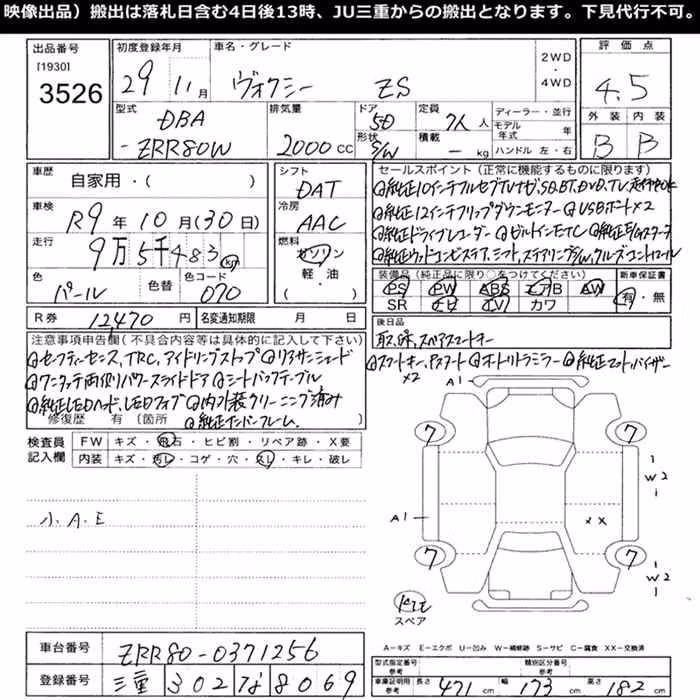 映像出品）搬出は落札日含む4日後13時、JU三重からの搬出となります。下見代行不可。
出品番号
[1930]
3526
初度登録年月
29 11月
車名・グレード
ヴォクシー ZS
2WD
・
4WD
評価点
4.5
外装 内装
B B
型式
DBA
-ZRR80W
排気量
2000cc
ドア 5D
形状 S/W
定員 7人 人
積載 - kg
ディーラー・並行
モデル年式 年
ハンドル 左・右
車歴
自家用・( )
車検
R9年10月(30日)
走行
9万5千483km
色
パール
色替
色コード
070
シフト
DAT
冷房
AAC
燃料
ガソリン
軽・油
( )
R券 12,470円
名変通知期限 月 日
セールスポイント（正常に機能するものに限ります）
@純正10インチフルセグTVナビ,SD,BT,DVD,TV,走行中OK
@純正12インチフリップダウンモニター @USBポート×2
@純正ドライブレコーダー @ビルトインETC @純正E/Gスターター
@純正ウッドコンビステア、シフト、ステアリングS/W,クルーズコントロール
装備品（純正品に限り○をつけてください）
PS PW ABS エアB AW
SR ナビ TV カワ
新車保証書
有・無
後日品
取、保、スペアスマートキー
注意事項申告欄（不具合内容等は具体的に記入して下さい）
@セーフティーセンス、TRC,アイドリングストップ @リアサンシェード
@ワンタッチ両側パワースライドドア @シートバックテーブル
@純正LEDヘッド、LEDフォグ @内外装クリーニング済み
@純正ナンバーフレーム、
修復歴 有〔箇所
@スマートキー,Pスタート @オートリトラミラー @純正マットバイザー
×2
検査員
記入欄
FW キズ・飛石・ヒビ割・リペア跡・X要
内装 キズ・汚レ・コゲ・穴・スレ・キレ・破レ
小.A.E
A1
7
7
1
W2
1
A1
××
7
7
1
W2
1
スペア
A－キズ E－エクボ U－凹み W－補修跡 S－サビ C－腐食 XX－交換済
車台番号
ZRR80-0371256
登録番号
三重 302 な 8069
型式指定番号
参考
類別区分番号
参考
車庫証明用
参考
長さ 471 cm
幅 173 cm
高さ 182 cm